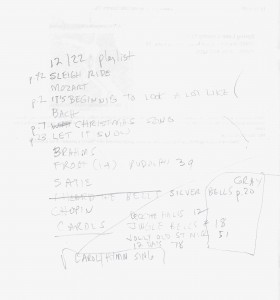 12/22 playlist
p.42 SLEIGH RIDE
MOZART
p.2 IT'S BEGINNING TO LOOK A LOT LIKE
BACH
p.7 CHRISTMAS SONG
p.28 LET IT SNOW
BRAHMS
RUDOLPH 39
SATIE
SILVER BELLS p.20
GRAY
CHOPIN
DECK THE HALLS 12
CAROLS
JINGLE BELLS 18
JOLLY OLD ST. NICK 51
12 DAYS 78
CAROL HYMN SING